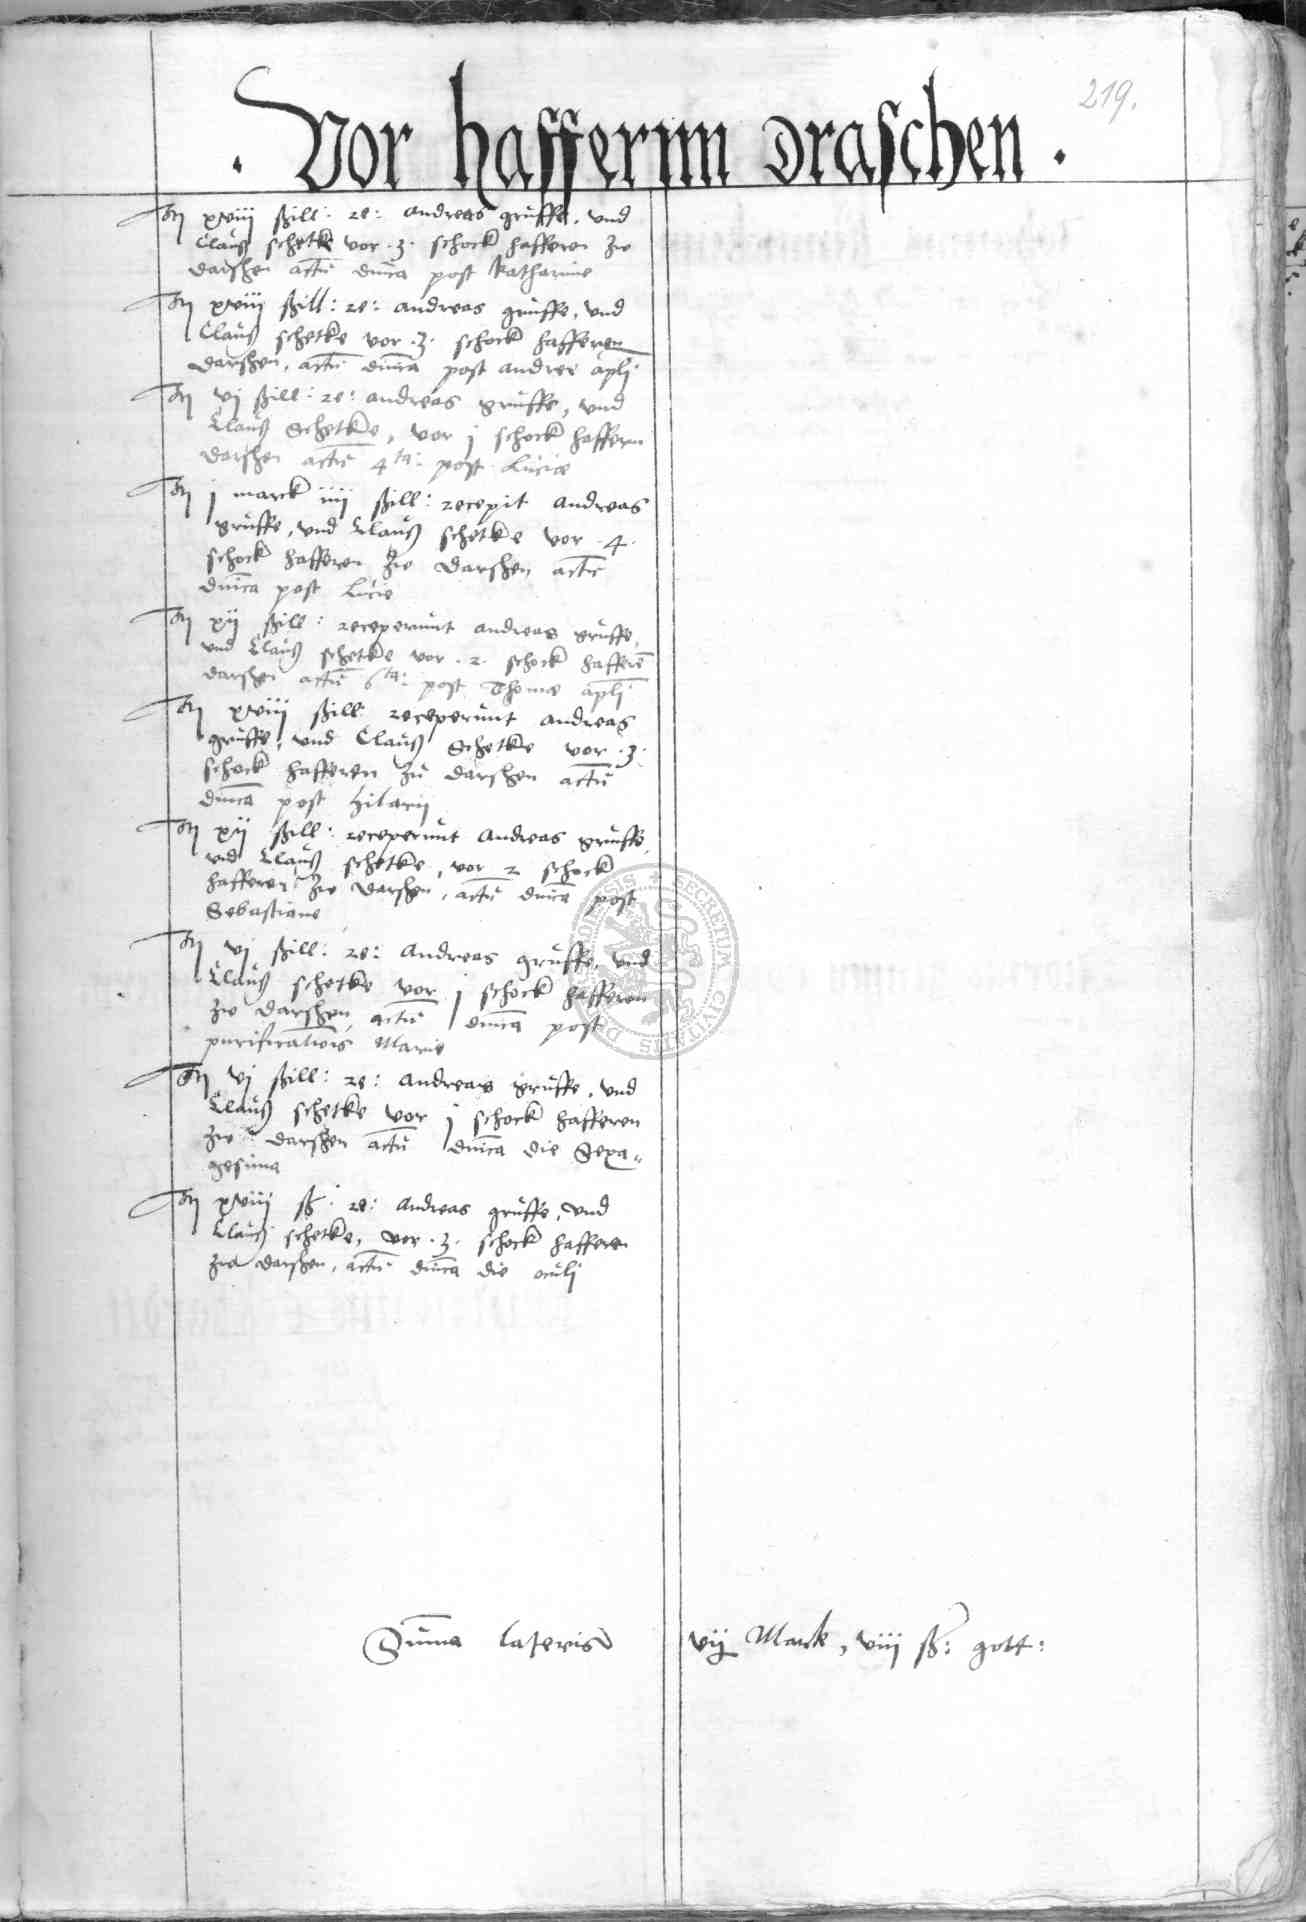 219.
· Vor haffernn draschen ·
Itn xviii ßill: re: andreas gruffe, vnd
Clauß schetke vor ·3· schock hafferen zw
darshen actū dnīca post Katharine
Itn xviii ßill: re: andreas gruffe, vnd
Clauß schetke vor ·3· schock hafferen
darshen, actū dnīca post andree apłi
Itn vj ßill: re: andreas gruffe, vnd
Clauß Schetke, vor j schock haffern
darshen actū 4ta: post Lucie
Itn j marck iiij ßill: recepit andreas
gruffe, vnd Clauß schetke vor ·4·
schock hafferen zw darshen actū
dnīca post Lucie
Itn xij ßill: receperunt andreas gruffe,
vnd Clauß schetke vor ·2· schock hafferē
darshen actū 6ta: post Thome apłi
Itn xviii ßill: receperunt andreas
gruffe, vnd Clauß Schetke vor ·3·
schock hafferen zu darshen actū
dnīca post hilarij
Itn xij ßill: receperunt Andreas gruffe,
vnd Clauß schetke, vor 2 schock
hafferen zw darshen, actū dnīca post
Sebastiane
Itn vj ßill: re: Andreas gruffe, vnd
Clauß schetke vor j schock hafferen
zw darshen, actū dnīca post
purificatiōis Marie
Itn vj ßill: re: Andreas gruffe, vnd
Clauß schetke vor j schock hafferen
zw darshen actū dnīca die Sexa=
gesima
Itn xviii ß: re: Andreas gruffe, vnd
Clauß schetke, vor ·3· schock hafferen
zw darshen, actū dnīca die oculj
Sūma lateris vij Mark, viij ß: gott:
SECRETUM CIVITATIS